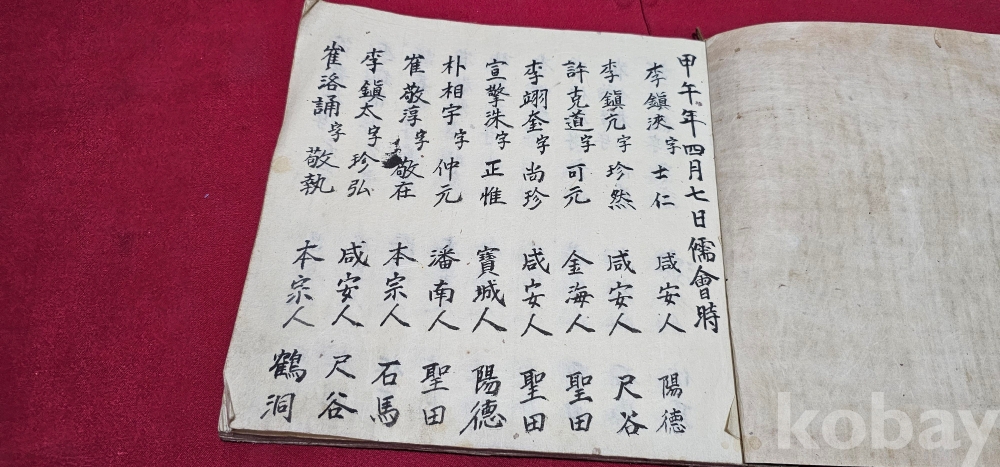 甲午年四月七日儒會時
李鎭浹字士仁 咸安人 陽德
李鎭亢字珍然 咸安人 尺谷
許克道字可元 金海人 聖田
李翊奎字尚珍 咸安人 聖田
宣擎洙字正惟 寶城人 陽德
朴相宇字仲元 潘南人 聖田
崔敬淳字敬在 本宗人 石馬
李鎭太字珍弘 咸安人 尺谷
崔洛誦字敬執 本宗人 鶴洞
kobay